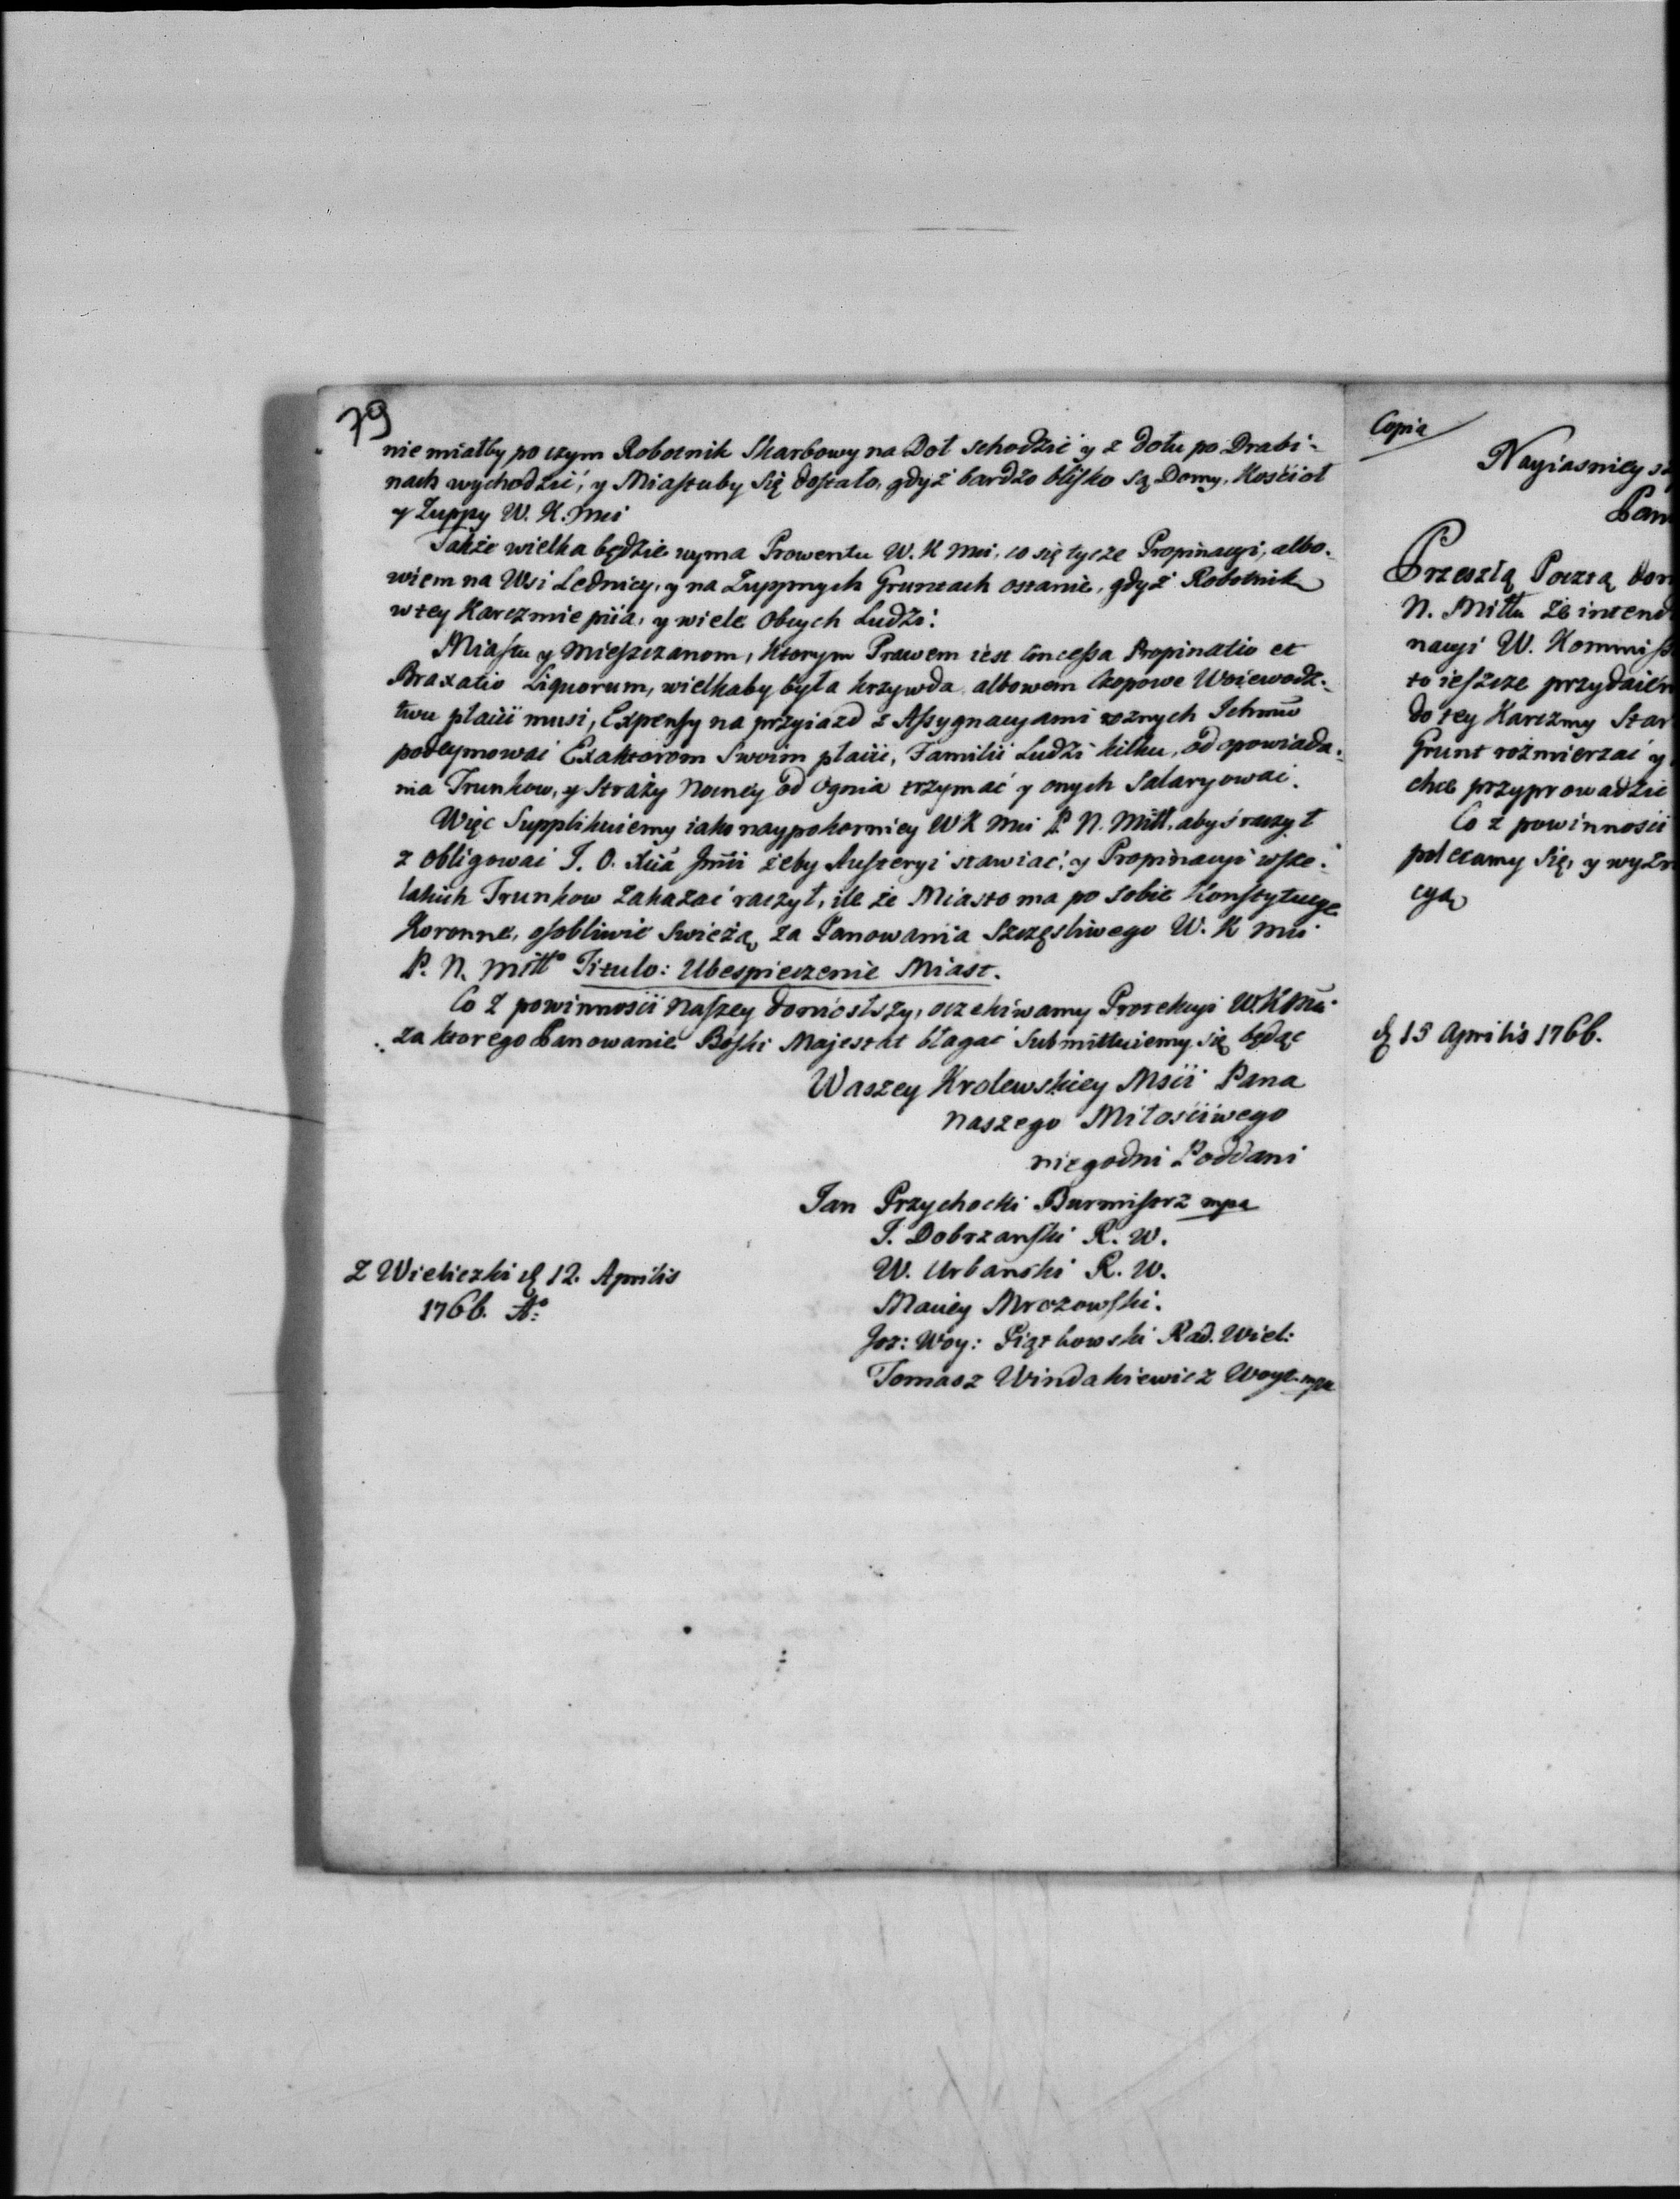 79
nie miałby po czym Robotnik Skarbowy na Doł schodzić y z dołu po Drabi-
nach wychodzić, y Miastuby Się dostało, gdyż bardzo blisko są Domy, Kościoł
y Zuppy W. K. Mci
Także wielka będzie uyma Prowentu W. K Mci, co się tycze Propinacyi, albo-
wiem na Wsi Lednicy, y na Zuppnych Gruntach ostanie, gdyż Robotnik
w tey Karczmie piia, y wiele Obcych Ludzi.
Miastu y Mieszczanom, Ktorym Prawem iest Concessa Propinatio et
Braxatio Liquorum, wielkaby była krzywda albowem Czopowe Woiewodz-
twu płacić musi, Expensy na przyiazd z Assygnacyami roznych Ichmw
podeymować Exaktorom Swoim płacić, Familii Ludzi kilku, od opowiada-
nia Trunkow, y Straży Nocney od Ognia trzymać y onych Salaryować.
Więc Supplikuiemy iako naypokorniey WK Mci P. N. Miłł, abyś raczył
z obligować J. O. Xcia Jmci żeby Austeryi stawiać, y Propinacyi wsze-
lakich Trunkow Zakazać raczył, ile że Miasto ma po sobie Konstytucye
Koronne, osobliwie Swieżą, za Panowania Szczęsliwego W. K Mci
P. N. Miłło Titulo: Ubespieczenie Miast.
Co z powinnosci Naszey doniosłszy, oczekiwamy Protekcyi W.K Mci
za ktorego Panowanie Boski Majestat błagać Submittuiemy się będąc
Waszey Krolewskiey Mści Pana
Naszego Miłościwego
niegodni Poddani
Jan Przychocki Burmistrz mpa
J. Dobrzanski R. W.
W. Urbanski R. W.
Maciey Mrozowski.
Joz: Woy: Piątkowski Rad. Wiel:
Tomasz Windakiewicz Woyt mpa
Z Wieliczki d 12. Aprilis
1766. Ao
Copia
Nayiasnieyszy
Pan
Przeszłą Pocztą don
N. Miłłu że intend
nacyi W. Kommiss
to ieszcze przydaie
do tey Karczmy Star
Grunt rozmierzać y
chce przyprowadzić
Co z powinności
polecamy Się, y wyzn
cyą
d 15 Aprilis 1766.